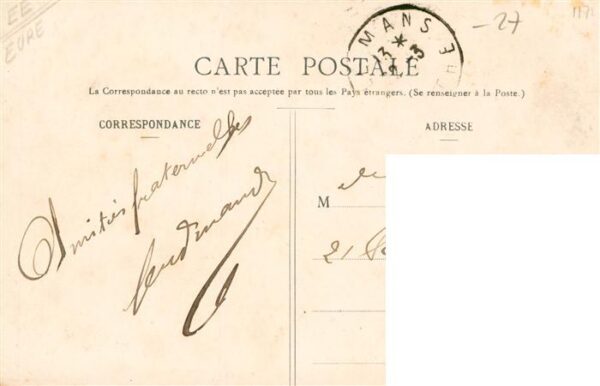 EURE
-27
MANS
CARTE POSTALE
La Correspondance au recto n'est pas acceptée par tous les Pays étrangers. (Se renseigner à la Poste.)
CORRESPONDANCE
ADRESSE
Amitiés fraternelles
Ferdinand
M
21